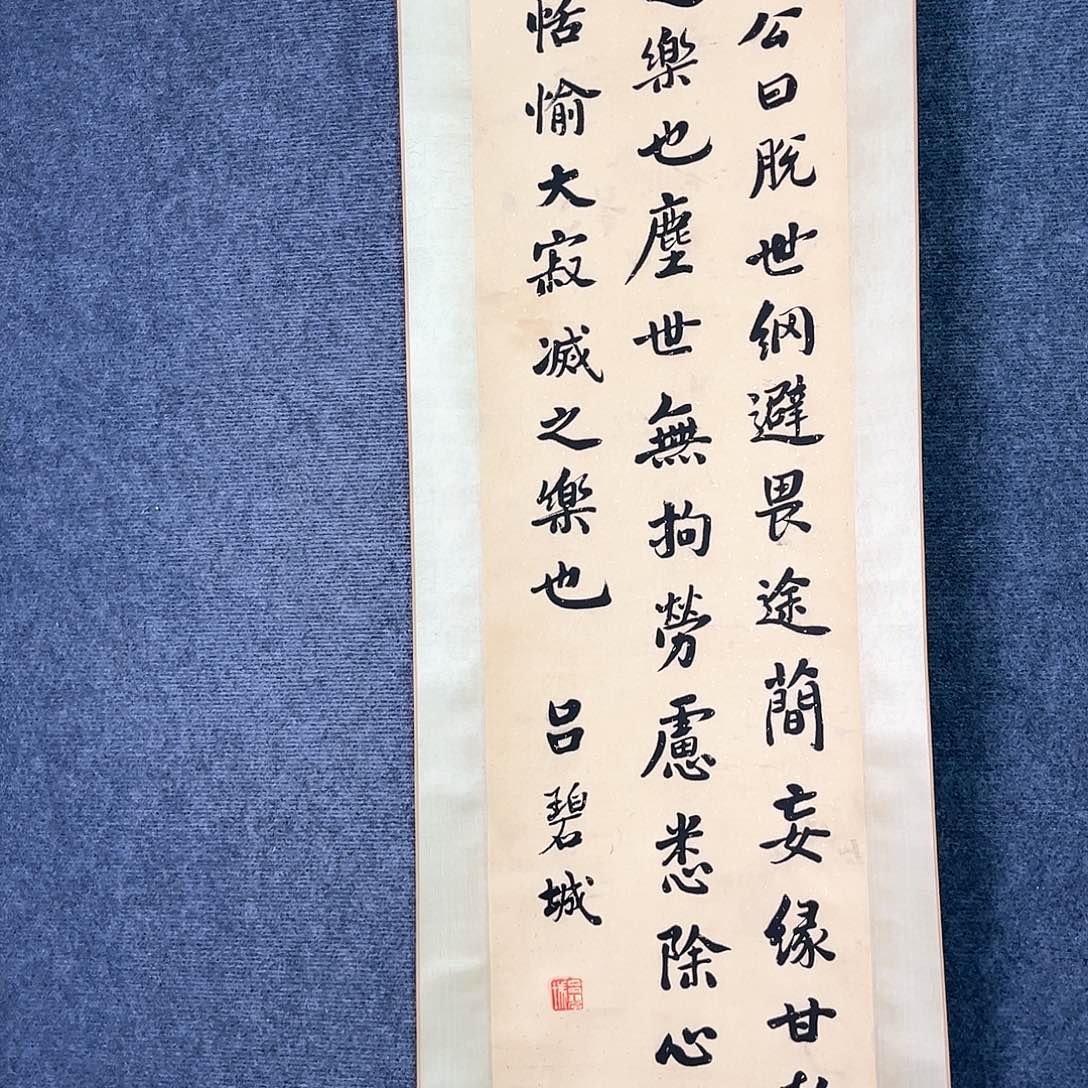 公曰脫世網避畏途簡妄緣甘
樂也塵世無拘勞慮悉除心
恬愉大寂滅之樂也
呂碧城